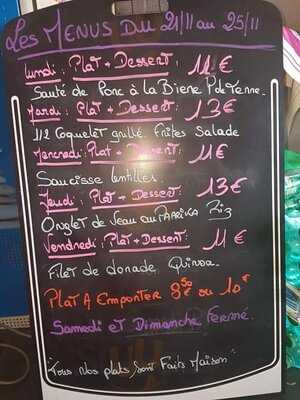 Les Menus Du 21/11 au 25/11
Lundi : Plat + Dessert : 11€
Sauté de Porc à la Biere P.de Terre.
Mardi : Plat + Dessert : 13€
1/2 Coquelet grillé. Frites Salade
Mercredi : Plat + Dessert : 11€
Saucisse Lentilles.
Jeudi : Plat + Dessert : 13€
Onglet de Veau au Paprika Riz
Vendredi : Plat + Dessert : 11€
Filet de dorade Quinoa.
Plat A Emporter 8€50 ou 10€
Samedi et Dimanche Fermé.
Tous Nos plats Sont Faits Maison